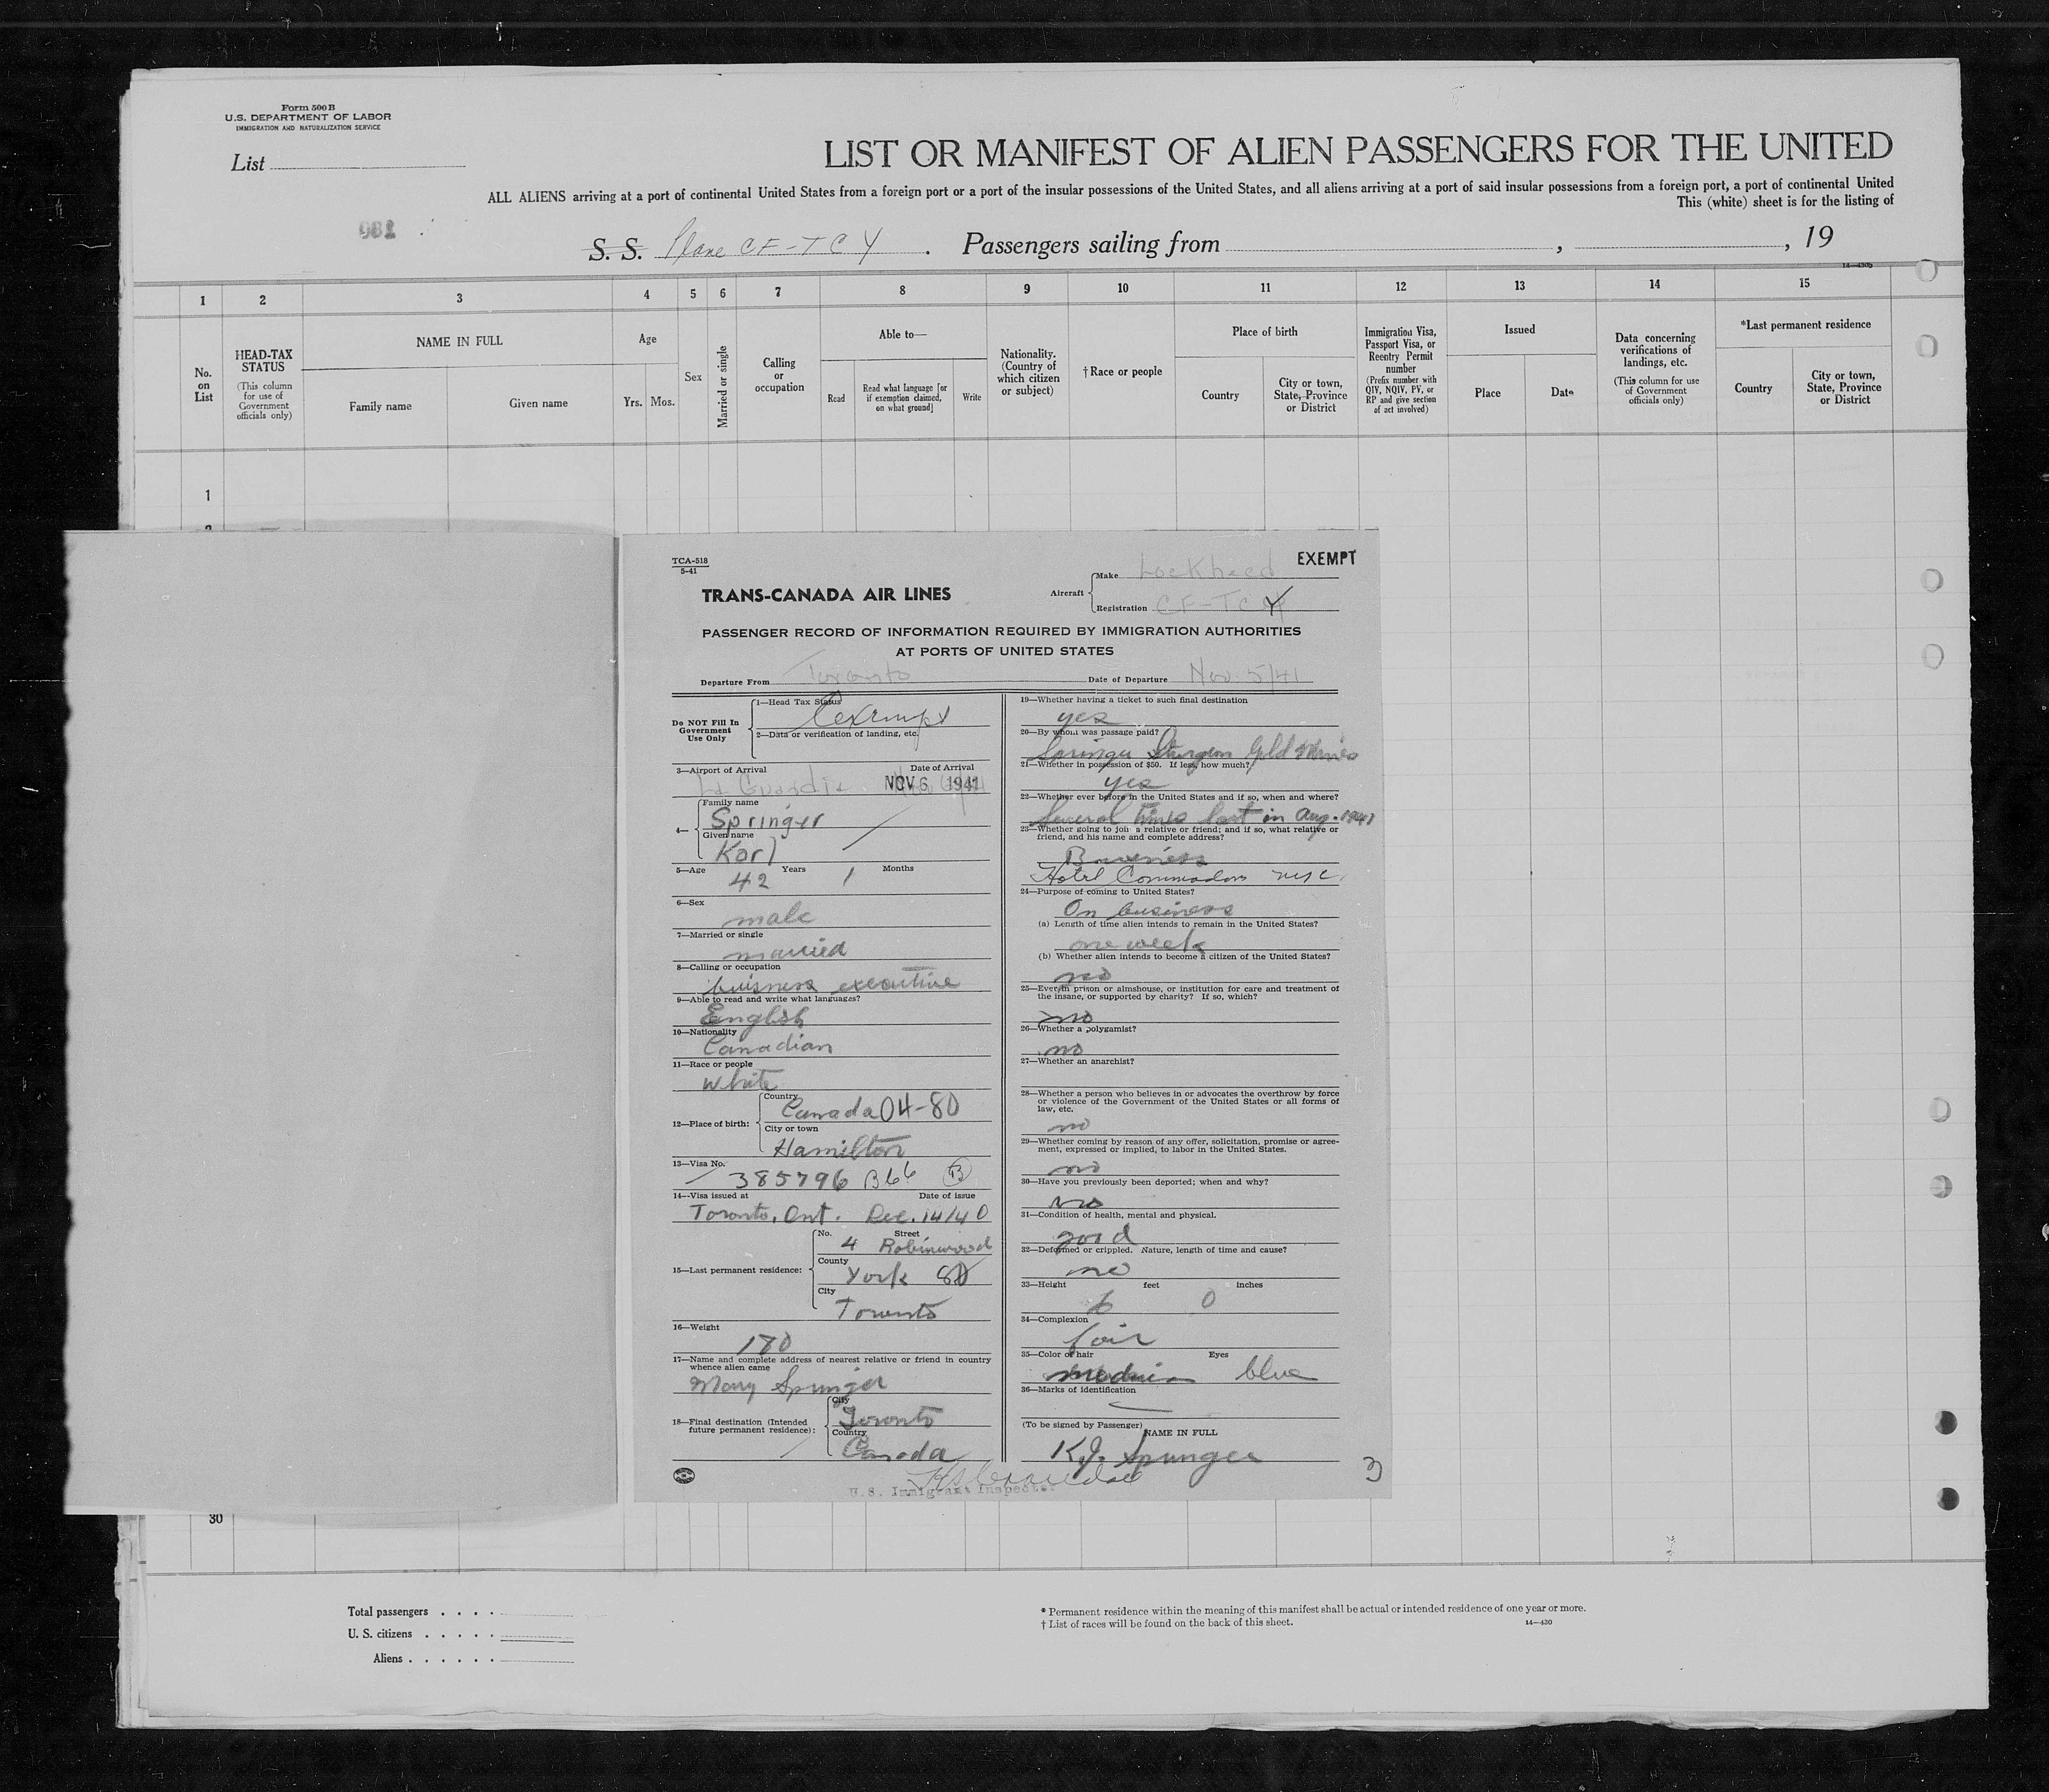 Form 500B
U.S. DEPARTMENT OF LABOR
IMMIGRATION AND NATURALIZATION SERVICE
List
LIST OR MANIFEST OF ALIEN PASSENGERS FOR THE UNITED
ALL ALIENS arriving at a port of continental United States from a foreign port or a port of the insular possessions of the United States, and all aliens arriving at a port of said insular possessions from a foreign port, a port of continental United
This (white) sheet is for the listing of
982
S. S. Plane CF-TCY. Passengers sailing from , , 19
14-430b
1 2 3 4 5 6 7 8 9 10 11 12 13 14 15
No. on List
HEAD-TAX STATUS
(This column for use of Government officials only)
NAME IN FULL
Family name
Given name
Age
Yrs. Mos.
Sex
Married or single
Calling or occupation
Able to—
Read
Read what language [or if exemption claimed, on what ground]
Write
Nationality. (Country of which citizen or subject)
†Race or people
Place of birth
Country
City or town, State, Province or District
Immigration Visa, Passport Visa, or Reentry Permit number
(Prefix number with QIV, NQIV, PV, or RP and give section of act involved)
Issued
Place
Date
Data concerning verifications of landings, etc.
(This column for use of Government officials only)
*Last permanent residence
Country
City or town, State, Province or District
1
TCA-518
5-41
EXEMPT
TRANS-CANADA AIR LINES
Aircraft
Make Lockheed
Registration CF-TCY
PASSENGER RECORD OF INFORMATION REQUIRED BY IMMIGRATION AUTHORITIES
AT PORTS OF UNITED STATES
Departure From Toronto Date of Departure Nov. 5/41
Do NOT Fill In Government Use Only
1—Head Tax Status
Exempt
2—Data or verification of landing, etc.
3—Airport of Arrival Date of Arrival
La Guardia NOV 6 1941
4— Family name
Springer
Given name
Karl
5—Age Years Months
42 1
6—Sex
male
7—Married or single
married
8—Calling or occupation
buisness executive
9—Able to read and write what languages?
English
10—Nationality
Canadian
11—Race or people
white
12—Place of birth:
Country
Canada 04-80
City or town
Hamilton
13—Visa No.
385796 B66 B
14—Visa issued at Date of issue
Toronto, Ont. Dec. 14/40
15—Last permanent residence:
No. Street
4 Robinwood
County
York 80
City
Toronto
16—Weight
180
17—Name and complete address of nearest relative or friend in country
whence alien came
Mary Springer
18—Final destination (Intended
future permanent residence):
City
Toronto
Country
Canada
19—Whether having a ticket to such final destination
yes
20—By whom was passage paid?
Springer Sturgeon Gold Mines
21—Whether in possession of $50. If less, how much?
yes
22—Whether ever before in the United States and if so, when and where?
Several times last in Aug. 1941
23—Whether going to join a relative or friend; and if so, what relative or
friend, and his name and complete address?
Business
Hotel Commodore NYC.
24—Purpose of coming to United States?
On business
(a) Length of time alien intends to remain in the United States?
one week
(b) Whether alien intends to become a citizen of the United States?
no
25—Ever in prison or almshouse, or institution for care and treatment of
the insane, or supported by charity? If so, which?
no
26—Whether a polygamist?
no
27—Whether an anarchist?
28—Whether a person who believes in or advocates the overthrow by force
or violence of the Government of the United States or all forms of
law, etc.
no
29—Whether coming by reason of any offer, solicitation, promise or agree-
ment, expressed or implied, to labor in the United States.
no
30—Have you previously been deported; when and why?
no
31—Condition of health, mental and physical.
good
32—Deformed or crippled. Nature, length of time and cause?
no
33—Height feet inches
6 0
34—Complexion
fair
35—Color of hair Eyes
blue
36—Marks of identification
(To be signed by Passenger)
NAME IN FULL
K.J. Springer
U.S. Immigrant Inspector
3
30
Total passengers . . . .
U. S. citizens . . . . .
Aliens . . . . . .
* Permanent residence within the meaning of this manifest shall be actual or intended residence of one year or more.
† List of races will be found on the back of this sheet.
14—430